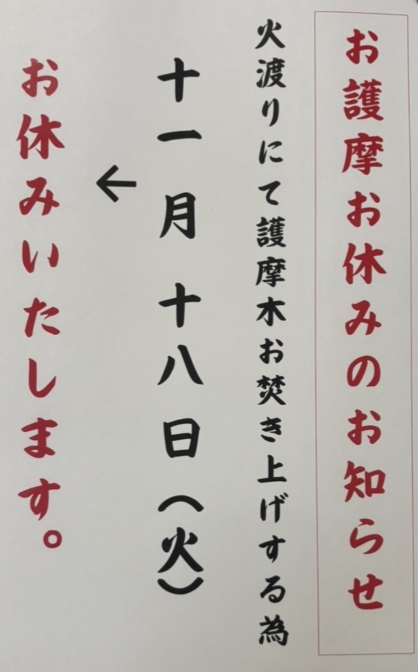 お護摩お休みのお知らせ
火渡りにて護摩木お焚き上げする為
十一月十八日(火)
←
お休みいたします。